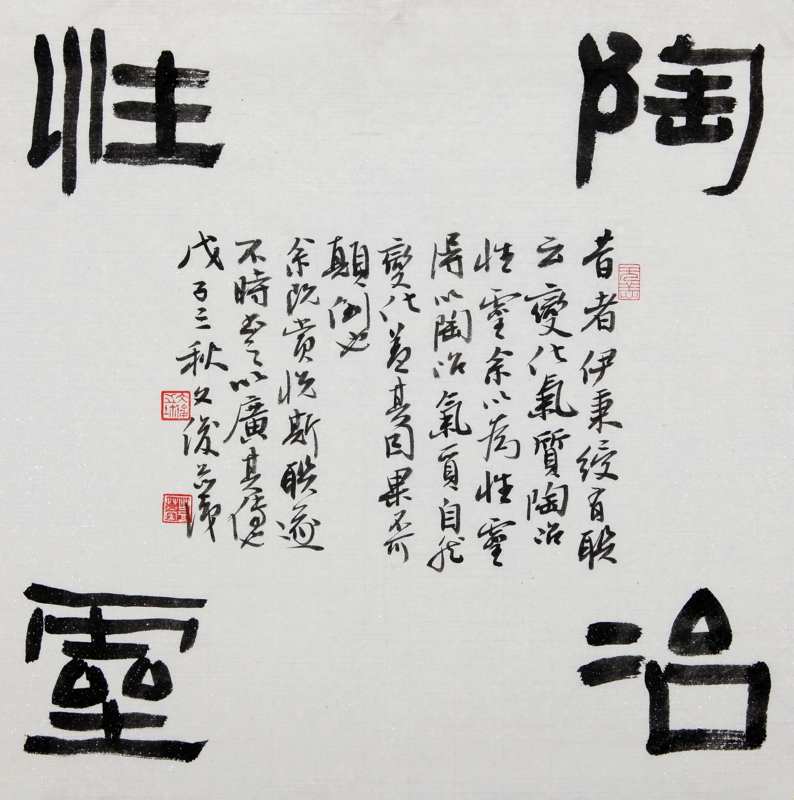 陶冶
性靈
昔者伊秉綬有聯
云變化氣質陶冶
性靈余以為性靈
得以陶冶氣質自然
變化蓋其因果不可
顛倒也
余既賞悅斯聯遂
不時書之以廣其傳也
戊子三秋文俊